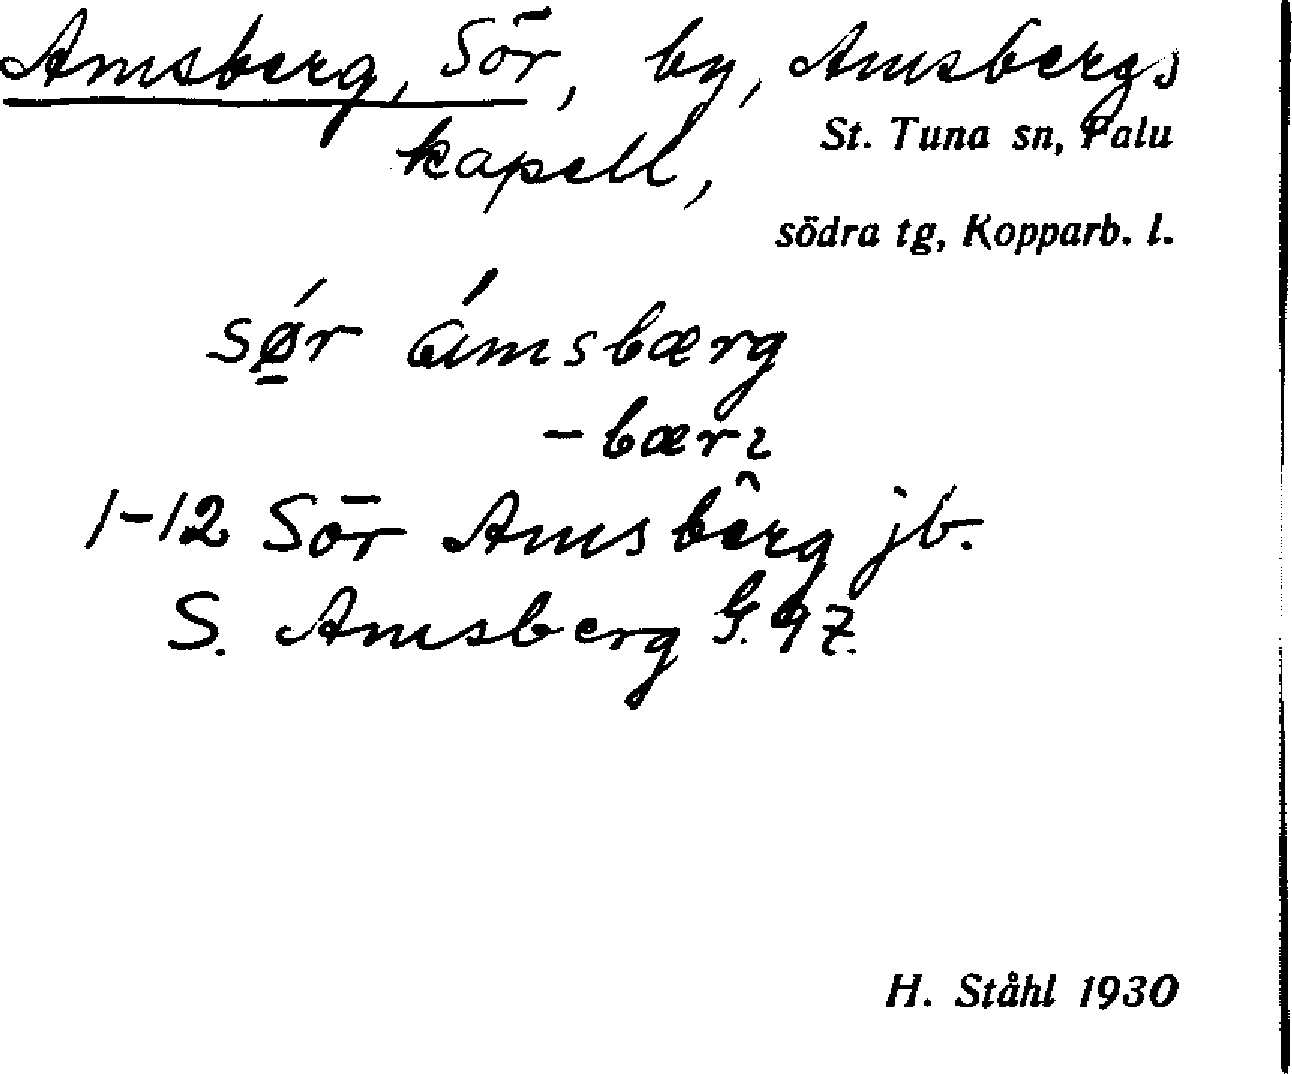 Amsberg, Sör, by, Amsbergs
kapell,
St. Tuna sn, Falu
södra tg, Kopparb. l.
sǿ̱r ámsbærg
-bærı
1-12 Sör Amsbêrg jb.
S. Amsberg G. 97.
H. Ståhl 1930